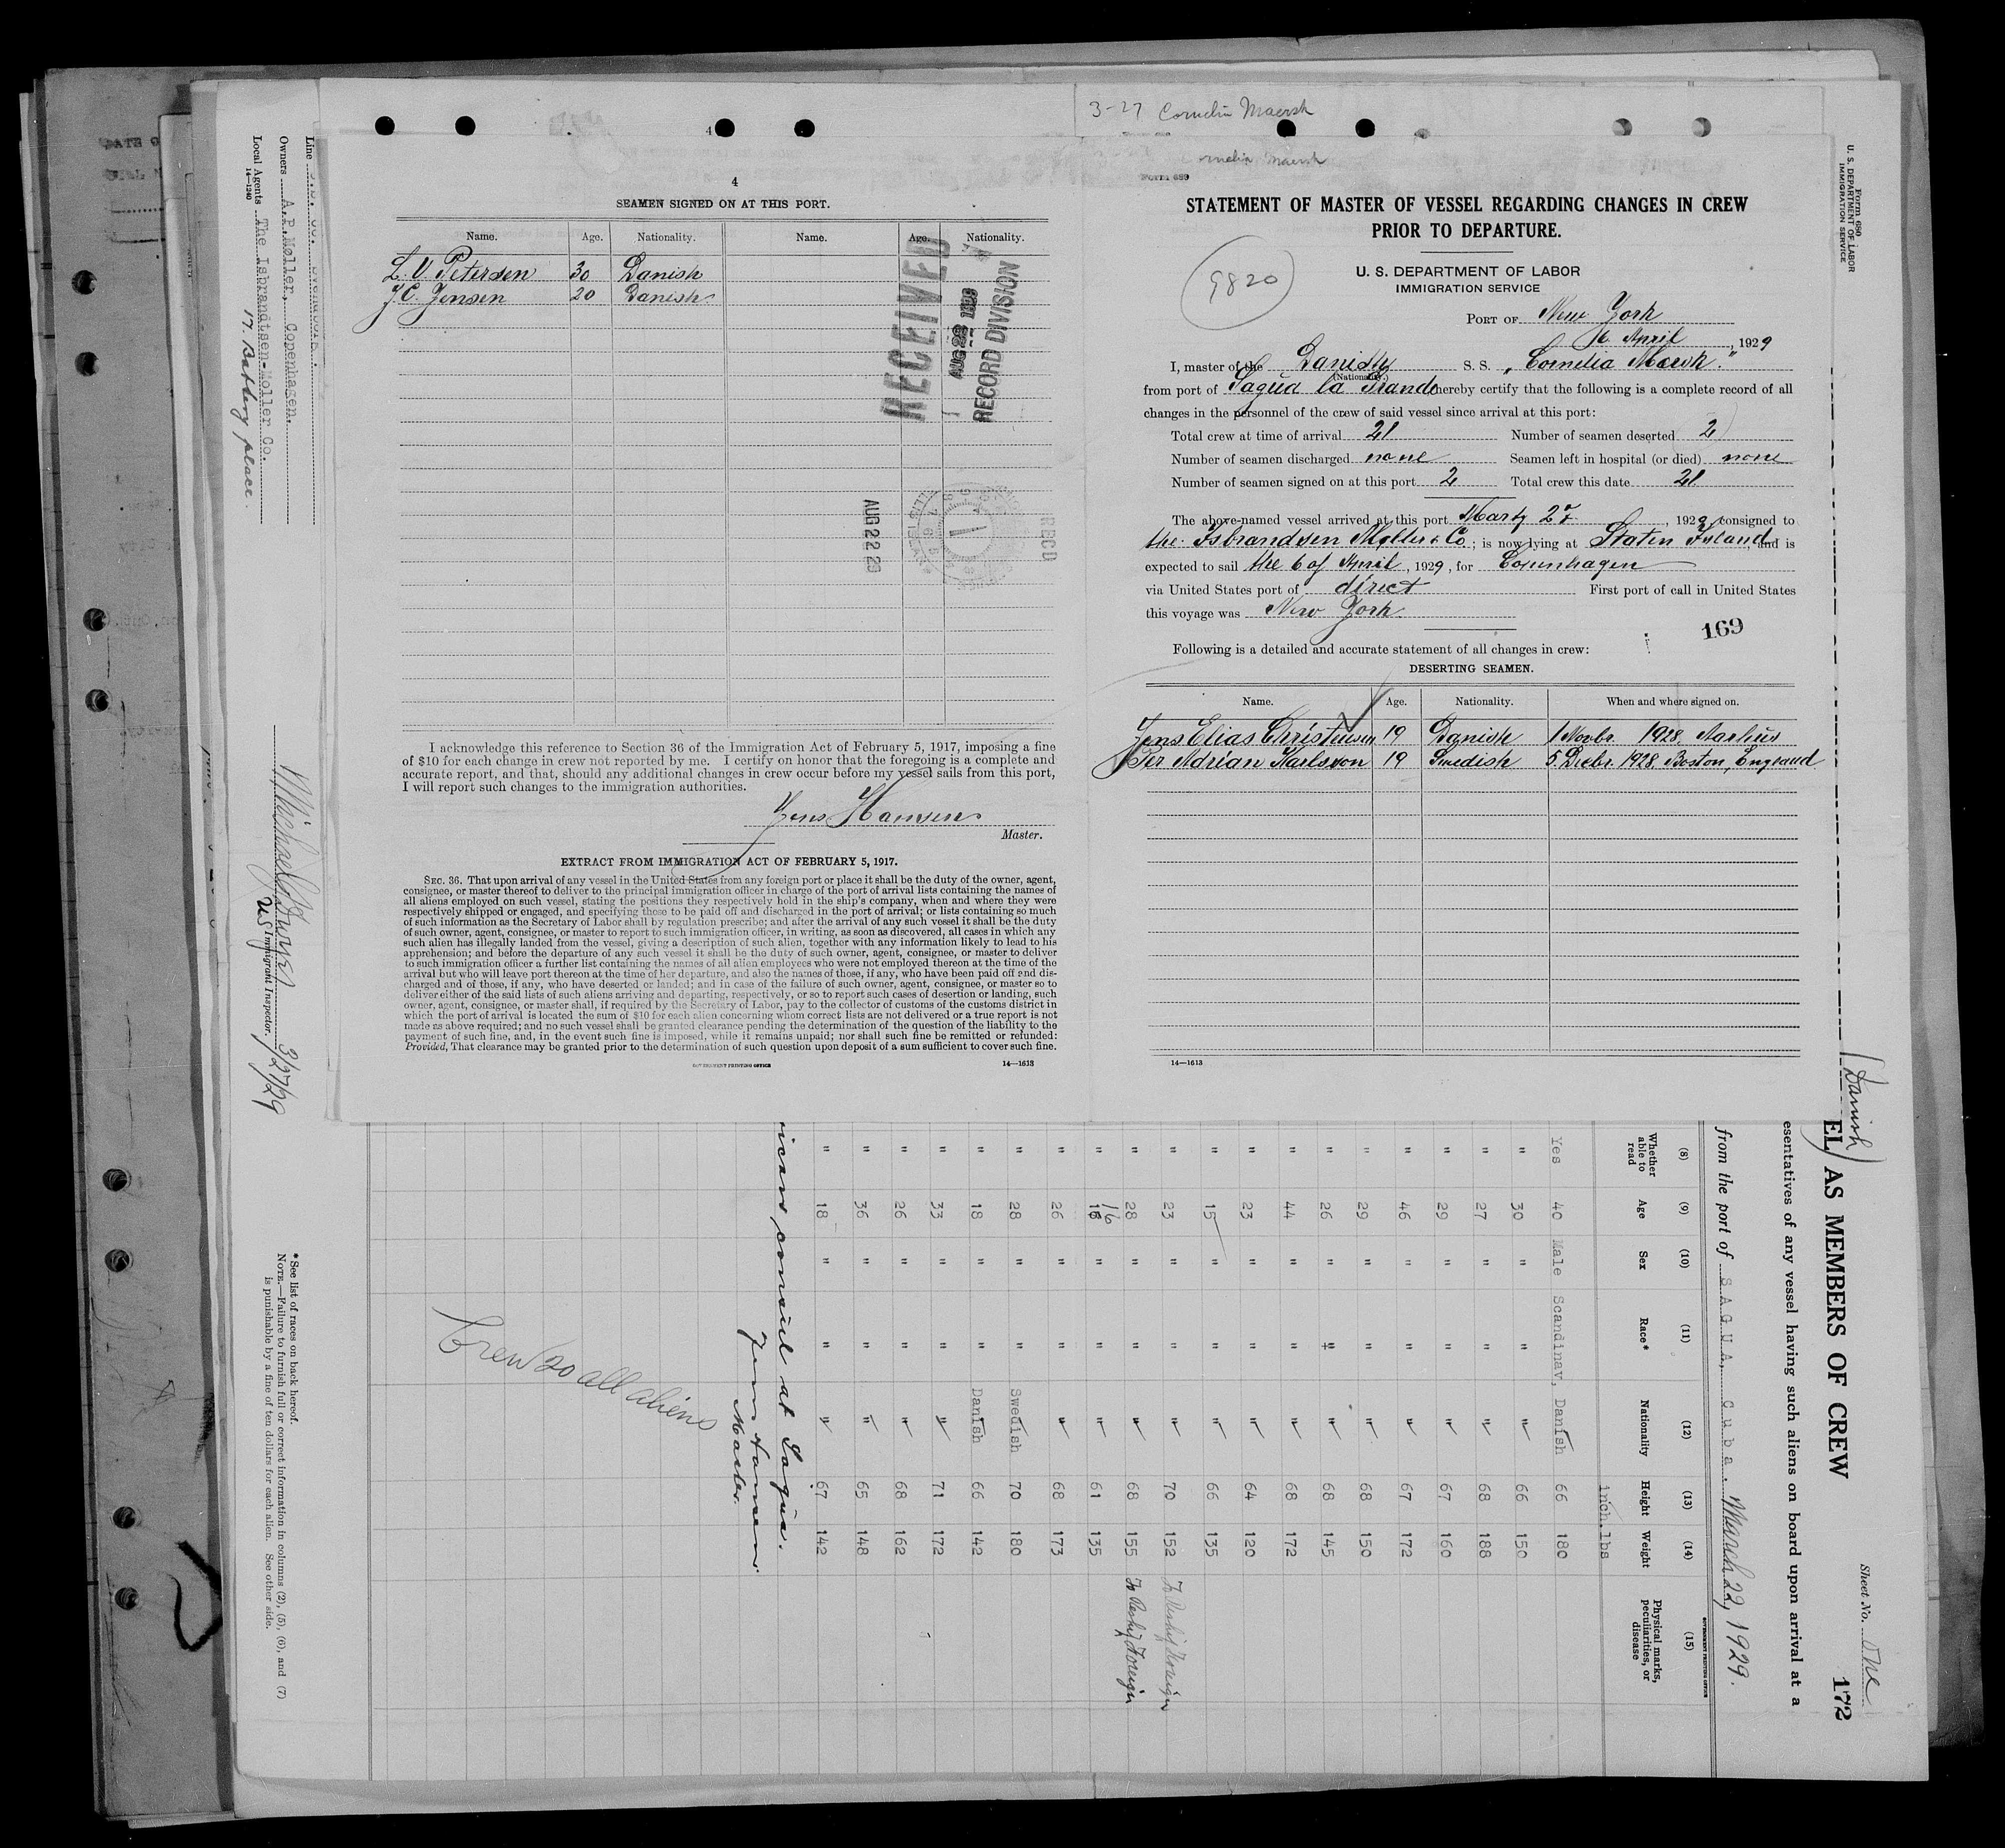 3-27 Cornelia Maersk
4
4
SEAMEN SIGNED ON AT THIS PORT.
Name. Age. Nationality. Name. Age. Nationality.
L. V. Petersen 30 Danish
J. C. Jensen 20 Danish
RECEIVED
RECORD DIVISION
AUG 22 29
REC'D
I acknowledge this reference to Section 36 of the Immigration Act of February 5, 1917, imposing a fine
of $10 for each change in crew not reported by me. I certify on honor that the foregoing is a complete and
accurate report, and that, should any additional changes in crew occur before my vessel sails from this port,
I will report such changes to the immigration authorities.
Jens Hansen
Master.
EXTRACT FROM IMMIGRATION ACT OF FEBRUARY 5, 1917.
SEC. 36. That upon arrival of any vessel in the United States from any foreign port or place it shall be the duty of the owner, agent,
consignee, or master thereof to deliver to the principal immigration officer in charge of the port of arrival lists containing the names of
all aliens employed on such vessel, stating the positions they respectively hold in the ship's company, when and where they were
respectively shipped or engaged, and specifying those to be paid off and discharged in the port of arrival; or lists containing so much
of such information as the Secretary of Labor shall by regulation prescribe; and after the arrival of any such vessel it shall be the duty
of such owner, agent, consignee, or master to report to such immigration officer, in writing, as soon as discovered, all cases in which any
such alien has illegally landed from the vessel, giving a description of such alien, together with any information likely to lead to his
apprehension; and before the departure of any such vessel it shall be the duty of such owner, agent, consignee, or master to deliver
to such immigration officer a further list containing the names of all alien employees who were not employed thereon at the time of the
arrival but who will leave port thereon at the time of her departure, and also the names of those, if any, who have been paid off and dis-
charged and of those, if any, who have deserted or landed; and in case of the failure of such owner, agent, consignee, or master so to
deliver either of the said lists of such aliens arriving and departing, respectively, or so to report such cases of desertion or landing, such
owner, agent, consignee, or master shall, if required by the Secretary of Labor, pay to the collector of customs of the customs district in
which the port of arrival is located the sum of $10 for each alien concerning whom correct lists are not delivered or a true report is not
made as above required; and no such vessel shall be granted clearance pending the determination of the question of the liability to the
payment of such fine, and, in the event such fine is imposed, while it remains unpaid; nor shall such fine be remitted or refunded:
Provided, That clearance may be granted prior to the determination of such question upon deposit of a sum sufficient to cover such fine.
GOVERNMENT PRINTING OFFICE 14—1613
Form 689
STATEMENT OF MASTER OF VESSEL REGARDING CHANGES IN CREW
PRIOR TO DEPARTURE.
9820
U. S. DEPARTMENT OF LABOR
IMMIGRATION SERVICE
PORT OF New York
6 April, 1929
I, master of the Danish S. S. „Cornelia Mærsk"
(Nationality.)
from port of Sagua la Grande hereby certify that the following is a complete record of all
changes in the personnel of the crew of said vessel since arrival at this port:
Total crew at time of arrival 21 Number of seamen deserted 2
Number of seamen discharged none Seamen left in hospital (or died) none
Number of seamen signed on at this port 2 Total crew this date 21
The above-named vessel arrived at this port Marts 27, 1929, consigned to
the Isbrandsen Møller & Co.; is now lying at Staten Island, and is
expected to sail the 6 of April, 1929, for Copenhagen
via United States port of direct First port of call in United States
this voyage was New York.
169
Following is a detailed and accurate statement of all changes in crew:
DESERTING SEAMEN.
Name. Age. Nationality. When and where signed on.
Jens Elias Christensen 19 Danish 1 Novbr. 1928. Aarhus
Per Adrian Karlsson 19 Swedish 5 Decbr. 1928 Boston, England
14—1613
Line
Owners A.P.Møller, Copenhagen.
Local Agents The Isbrandtsen-Moller Co.
14—1240
17. Battery place
Immigrant Inspector.
3/27/29
*See list of races on back hereof.
NOTE.—Failure to furnish full or correct information in columns (2), (5), (6), and (7)
is punishable by a fine of ten dollars for each alien. See other side.
Form 680
U. S. DEPARTMENT OF LABOR
IMMIGRATION SERVICE
Sheet No. One
172
(Danish)
EL AS MEMBERS OF CREW
esentatives of any vessel having such aliens on board upon arrival at a
from the port of SAGUA, Cuba. March 22, 1929.
GOVERNMENT PRINTING OFFICE
(8) (9) (10) (11) (12) (13) (14) (15)
Whether able to read Age Sex Race* Nationality Height Weight Physical marks, peculiarities, or disease
inch. lbs
Yes 40 Male Scandinav, Danish 66 180
" 30 " " " 66 150
" 27 " " " 68 188
" 29 " " " 67 160
" 46 " " " 67 172
" 29 " " " 68 150
" 26 " " " 68 145
" 44 " " " 68 172
" 23 " " " 64 120
" 15 " " " 66 135
" 23 " " " 70 152 To Reship Foreign
" 28 " " " 68 155 To Reship Foreign
" 16 " " " 61 135
" 26 " " " 68 173
" 28 " " Swedish 70 180
" 18 " " Danish 66 142
" 33 " " " 71 172
" 26 " " " 68 162
" 36 " " " 65 148
" 18 " " " 67 142
consul at Sagua.
Jens Hansen
Master.
Crew 20 all aliens